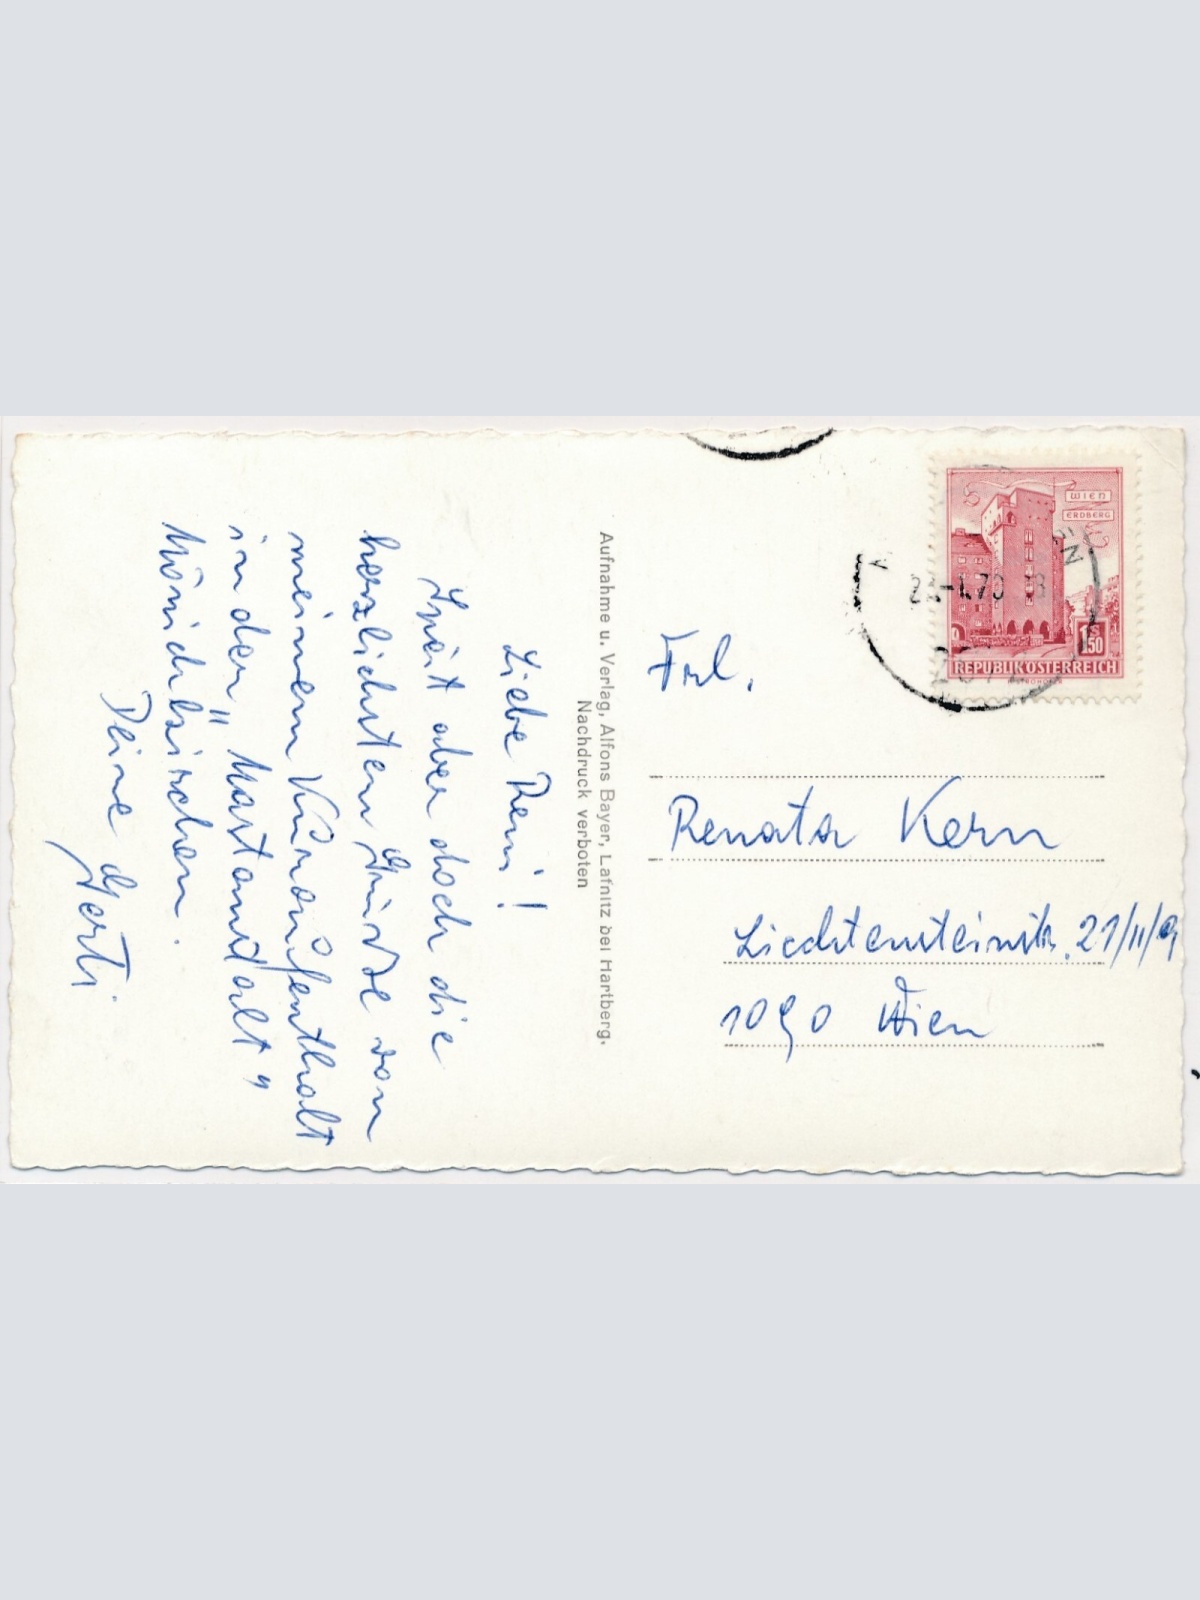 Liebe Reni!
Spät aber doch die
herzlichsten Grüße von
meinem Kuraufenthalt
in der "Mastanstalt"
Mönichkirchen.
Deine Gerti
Aufnahme u. Verlag, Alfons Bayer, Lafnitz bei Hartberg.
Nachdruck verboten
WIEN
ERDBERG
S
1.50
REPUBLIK ÖSTERREICH
Frl.
Renata Kern
Liechtensteinstr. 21/11/9
1090 Wien